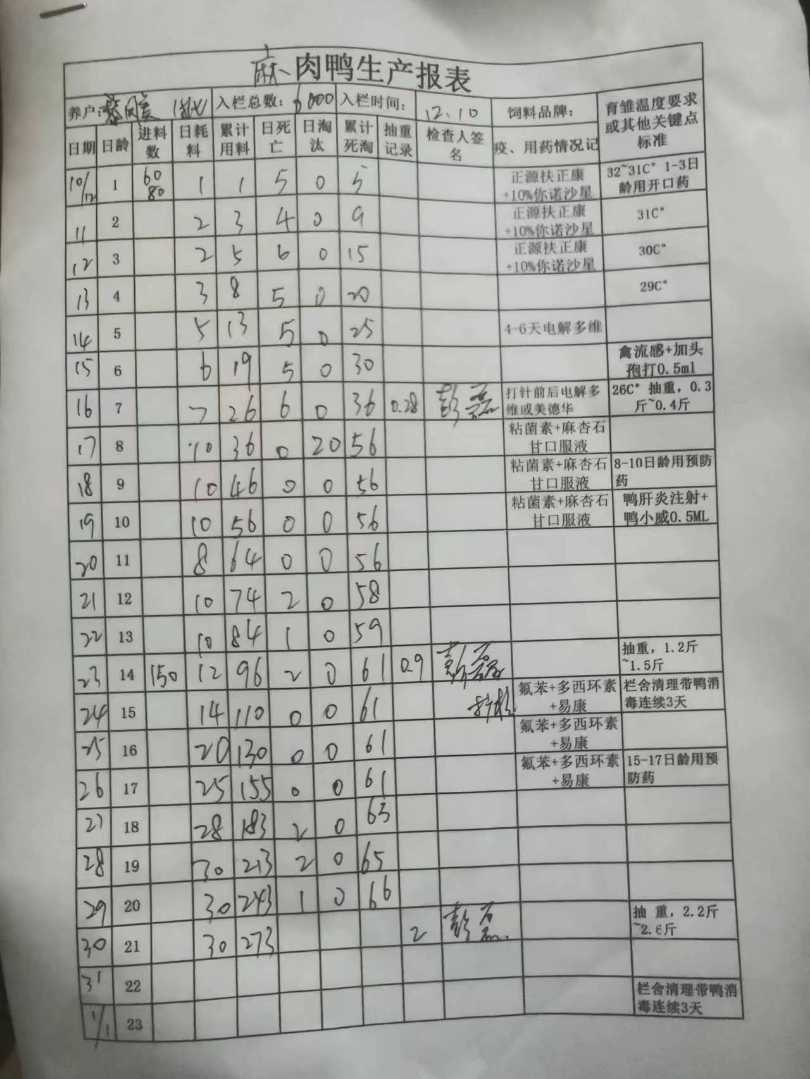 麻 肉鸭生产报表
养户: 入栏总数: 6000 入栏时间: 12.10 饲料品牌: 育雏温度要求或其他关键点标准
日期 日龄 进料数 日耗料 累计用料 日死亡 日淘汰 累计死淘 抽重记录 检查人签名 疫、用药情况记
10/12 1 60 80 1 1 5 0 5 正源扶正康+10%你诺沙星 32~31C° 1-3日龄用开口药
11 2 2 3 4 0 9 正源扶正康+10%你诺沙星 31C°
12 3 2 5 6 0 15 正源扶正康+10%你诺沙星 30C°
13 4 3 8 5 0 20 29C°
14 5 5 13 5 0 25 4-6天电解多维
15 6 6 19 5 0 30 禽流感+加头孢打0.5ml
16 7 7 26 6 0 36 0.28 彭磊 打针前后电解多维或美德华 26C° 抽重,0.3斤~0.4斤
17 8 10 36 0 20 56 粘菌素+麻杏石甘口服液
18 9 10 46 0 0 56 粘菌素+麻杏石甘口服液 8-10日龄用预防药
19 10 10 56 0 0 56 粘菌素+麻杏石甘口服液 鸭肝炎注射+鸭小威0.5ML
20 11 8 64 0 0 56
21 12 10 74 2 0 58
22 13 10 84 1 0 59
23 14 150 12 96 2 0 61 0.9 彭磊 抽重,1.2斤~1.5斤
24 15 14 110 0 0 61 氟苯+多西环素+易康 栏舍清理带鸭消毒连续3天
25 16 20 130 0 0 61 氟苯+多西环素+易康
26 17 25 155 0 0 61 氟苯+多西环素+易康 15-17日龄用预防药
27 18 28 183 2 0 63
28 19 30 213 2 0 65
29 20 30 243 1 0 66
30 21 30 273 2 彭磊 抽 重,2.2斤~2.6斤
31 22 栏舍清理带鸭消毒连续3天
1/1 23